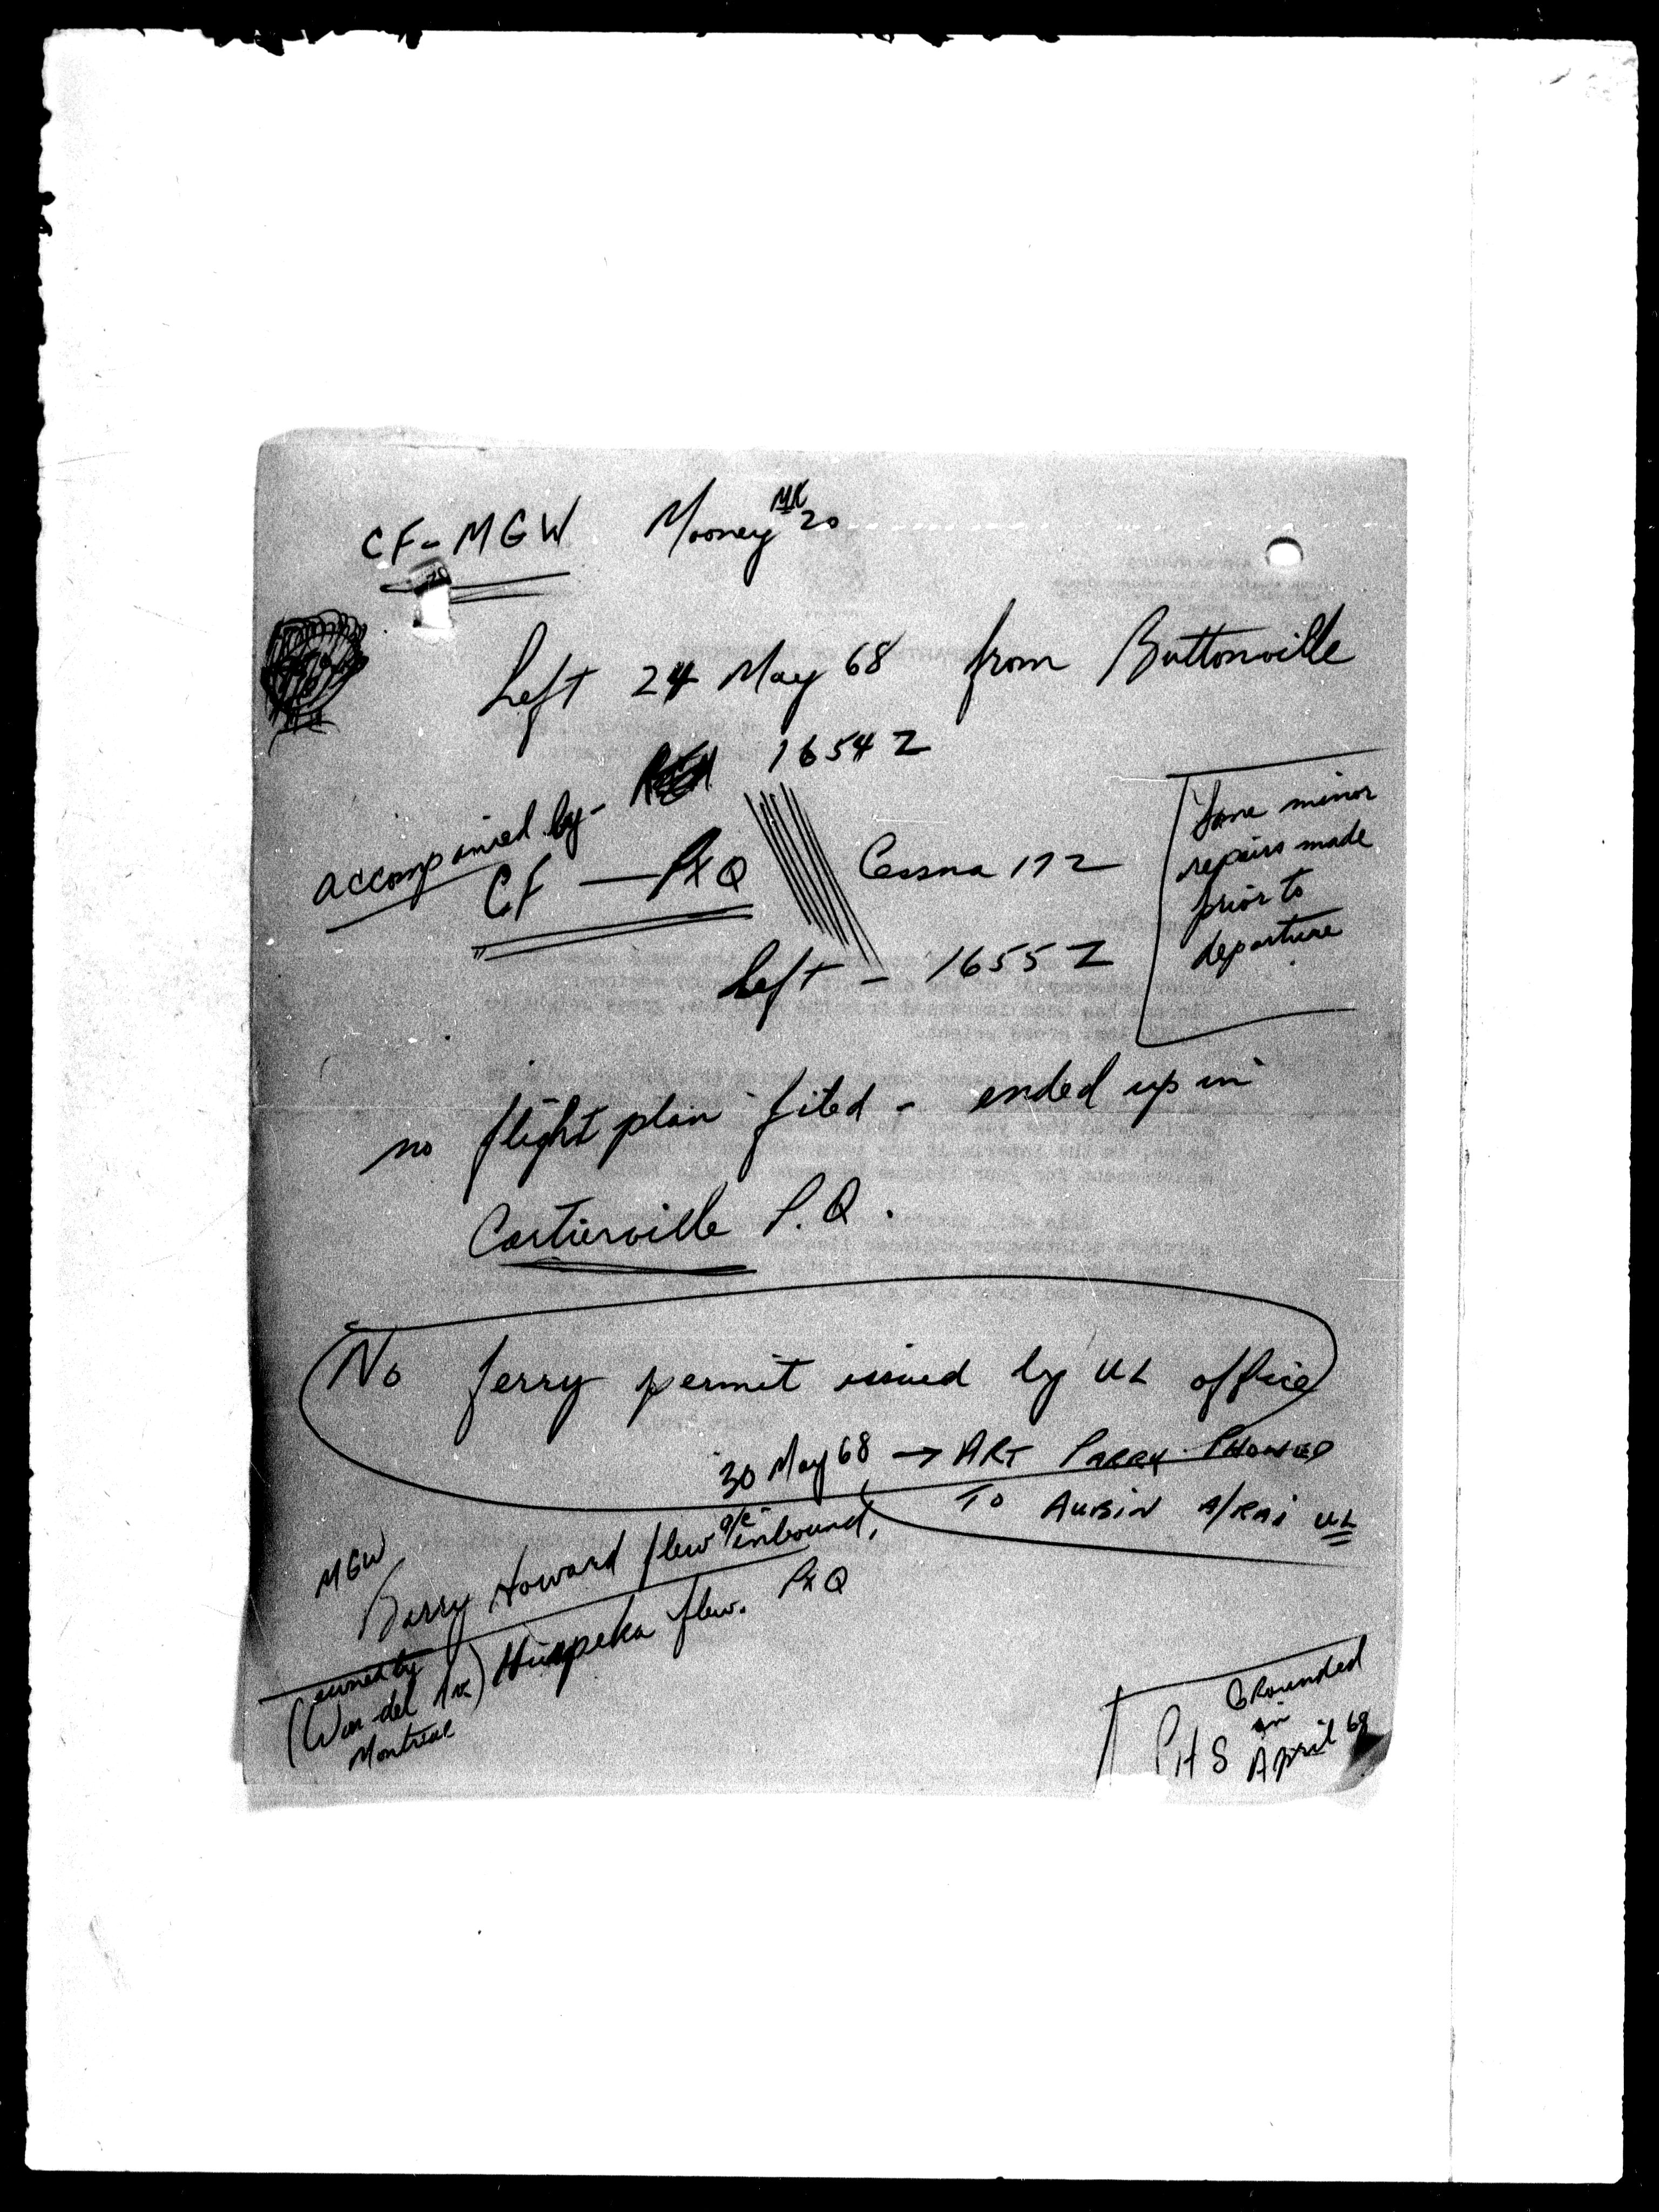 CF-MGW Mooney MK 20
Left 24 May 68 from Buttonville
1654 Z
accompanied by-
CF — PXQ Cessna 172
Some minor
repairs made
prior to
departure
Left - 1655 Z
no flight plan filed - ended up in
Cartierville P.Q.
No ferry permit issued by UL office
30 May 68 → ART PARRY PHONED
TO AUBIN A/RAI UL
MGW
Barry Howard flew a/c inbound,
flew. PXQ
(owned by
Montreal
Grounded
in
PHS April 68